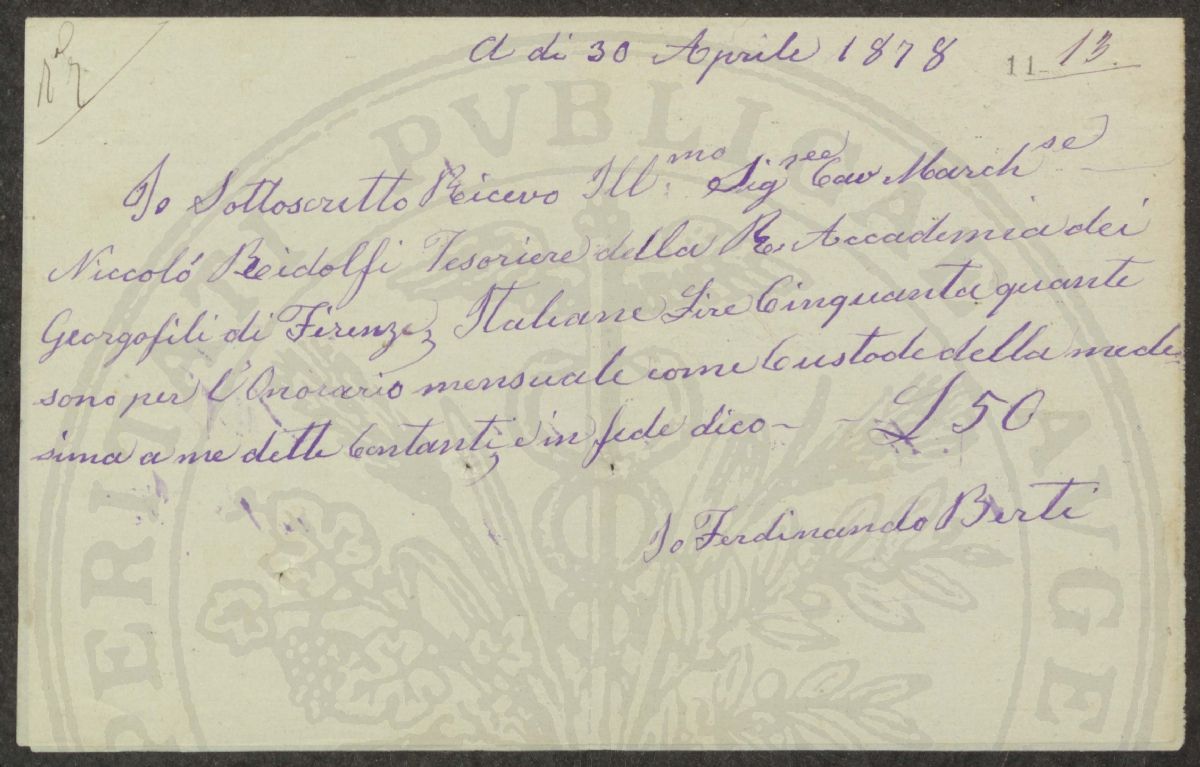 A di 30 Aprile 1878
11-13.
Io Sottoscritto Ricevo Ill:mo Sig.ree Cav March.se
Niccoló Ridolfi Tesoriere della R. Accademia dei
Georgofili di Firenze, Italiane Lire Cinquanta, quante
sono per l'Onorario mensuale come Custode della mede-
sima a me dette Contanti, e in fede dico - - £ 50
Io Ferdinando Berti
PROSPERITATI PVBLICAE AVGENDAE